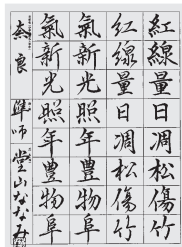 紅線量日凋松傷竹
紅線量日凋松傷竹
氣新光照年豊物阜
氣新光照年豊物阜
奈良 準師 堂山ななみ